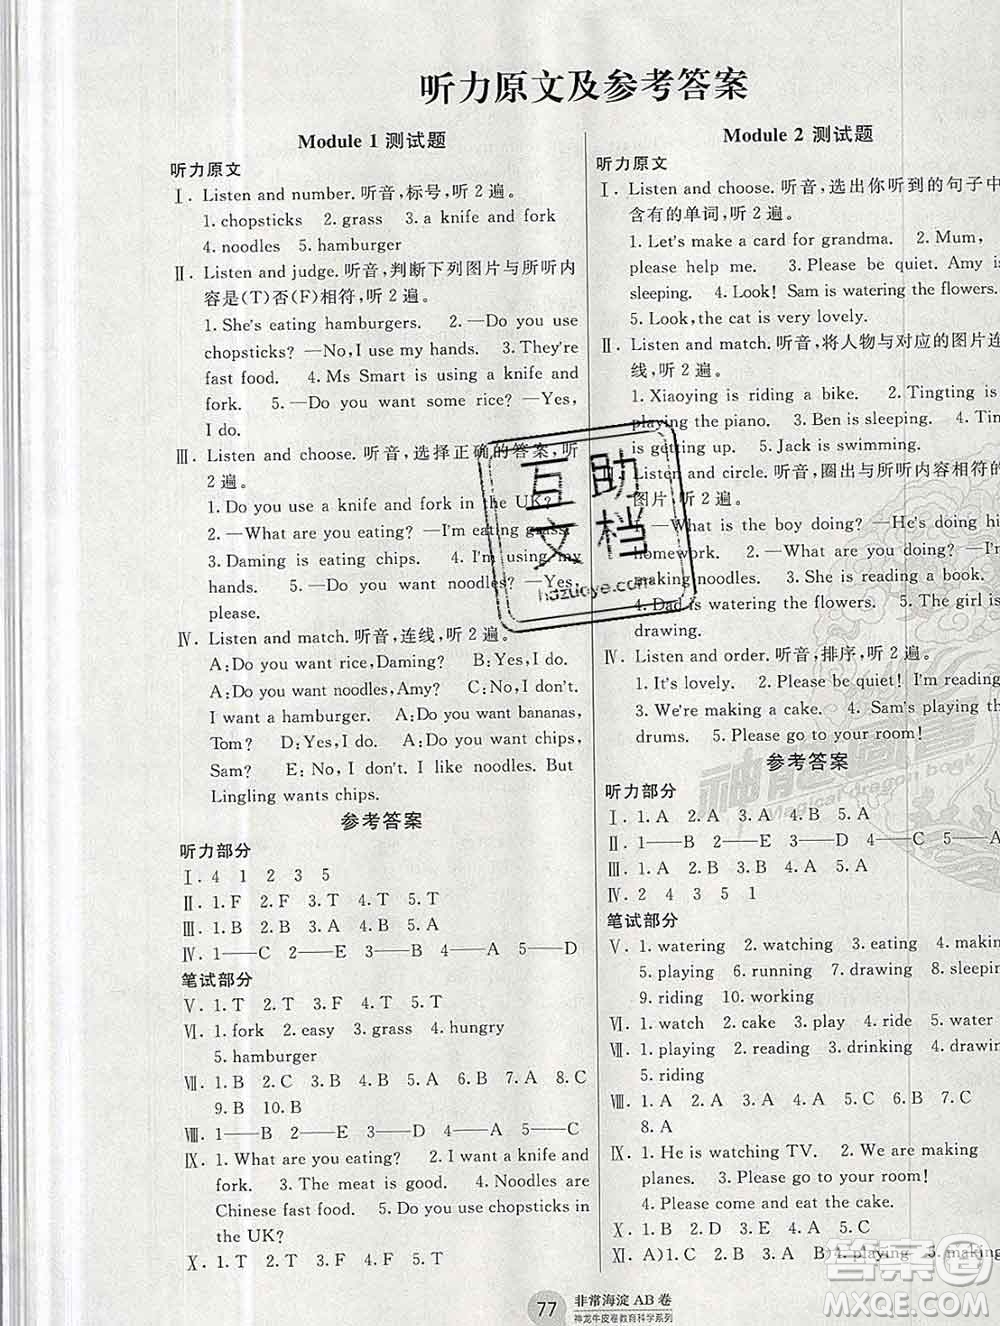 听力原文及参考答案
Module 1 测试题
听力原文
Ⅰ. Listen and number. 听音,标号,听 2 遍。
1. chopsticks 2. grass 3. a knife and fork
4. noodles 5. hamburger
Ⅱ. Listen and judge. 听音,判断下列图片与所听内
容是(T)否(F)相符,听 2 遍。
1. She's eating hamburgers. 2. —Do you use
chopsticks? —No, I use my hands. 3. They're
fast food. 4. Ms Smart is using a knife and
fork. 5. —Do you want some rice? —Yes,
I do.
Ⅲ. Listen and choose. 听音,选择正确的答案,听
2遍。
1. Do you use a knife and fork in the UK?
2. —What are you eating? —I'm eating grass.
3. Daming is eating chips. 4. I'm using my
hands. 5. —Do you want noodles? —Yes,
please.
Ⅳ. Listen and match. 听音,连线,听 2 遍。
A:Do you want rice,Daming? B:Yes,I do.
A:Do you want noodles,Amy? C:Yes,I do.
I want a hamburger. A:Do you want bananas,
Tom? D:Yes,I do. A:Do you want chips,
Sam? E: No, I don't. I like noodles. But
Lingling wants chips.
参考答案
听力部分
Ⅰ. 4 1 2 3 5
Ⅱ. 1. F 2. F 3. T 4. T 5. T
Ⅲ. 1. B 2. B 3. A 4. B 5. A
Ⅳ. 1——C 2——E 3——B 4——A 5——D
笔试部分
Ⅴ. 1. T 2. T 3. F 4. T 5. T
Ⅵ. 1. fork 2. easy 3. grass 4. hungry
5. hamburger
Ⅶ. 1. B 2. C 3. B 4. B 5. A 6. B 7. A 8. C
9. B 10. B
Ⅷ. 1——B 2——D 3——E 4——A 5——C
Ⅸ. 1. What are you eating? 2. I want a knife and
fork. 3. The meat is good. 4. Noodles are
Chinese fast food. 5. Do you use chopsticks in
the UK?
Ⅹ. 1. C 2. B 3. D 4. A 5. E
Module 2 测试题
听力原文
Ⅰ. Listen and choose. 听音,选出你听到的句子中
含有的单词,听 2 遍。
1. Let's make a card for grandma. 2. Mum,
please help me. 3. Please be quiet. Amy is
sleeping. 4. Look! Sam is watering the flowers.
5. Look, the cat is very lovely.
Ⅱ. Listen and match. 听音,将人物与对应的图片连
线,听 2 遍。
1. Xiaoying is riding a bike. 2. Tingting is
playing the piano. 3. Ben is sleeping. 4.
is getting up. 5. Jack is swimming.
Listen and circle. 听音,圈出与所听内容相符的
图片,听 2 遍。
—What is the boy doing? —He's doing his
homework. 2. —What are you doing?
making noodles. 3. She is reading a book.
4. Dad is watering the flowers. 5. The girl is
drawing.
Ⅳ. Listen and order. 听音,排序,听 2 遍。
1. It's lovely. 2. Please be quiet! I'm reading.
3. We're making a cake. 4. Sam's playing the
drums. 5. Please go to your room!
参考答案
听力部分
Ⅰ. 1. A 2. A 3. A 4. B 5. A
Ⅱ. 1——B 2——E 3——D 4——C 5——A
Ⅲ. 1. A 2. B 3. B 4. A 5. A
Ⅳ. 2 4 3 5 1
笔试部分
Ⅴ. 1. watering 2. watching 3. eating 4. making
5. playing 6. running 7. drawing 8. sleeping
9. riding 10. working
Ⅵ. 1. watch 2. cake 3. play 4. ride 5. water
Ⅶ. 1. playing 2. reading 3. drinking 4. drawing
5. riding
Ⅷ. 1. A 2. A 3. A 4. A 5. C 6. B 7. B
8. A
Ⅸ. 1. He is watching TV. 2. We are making
planes. 3. Please go to your room!
4. Please come and eat the cake.
Ⅹ. 1. B 2. D 3. E 4. A 5. C
Ⅺ. A)1. C 2. A 3. A B)4. playing 5. making
77 非常海淀 AB 卷
神龙牛皮卷教育科学系列
互助
文档
hdzuoye.com
神龙图书
Magical dragon book
答案圈
MXQE.COM